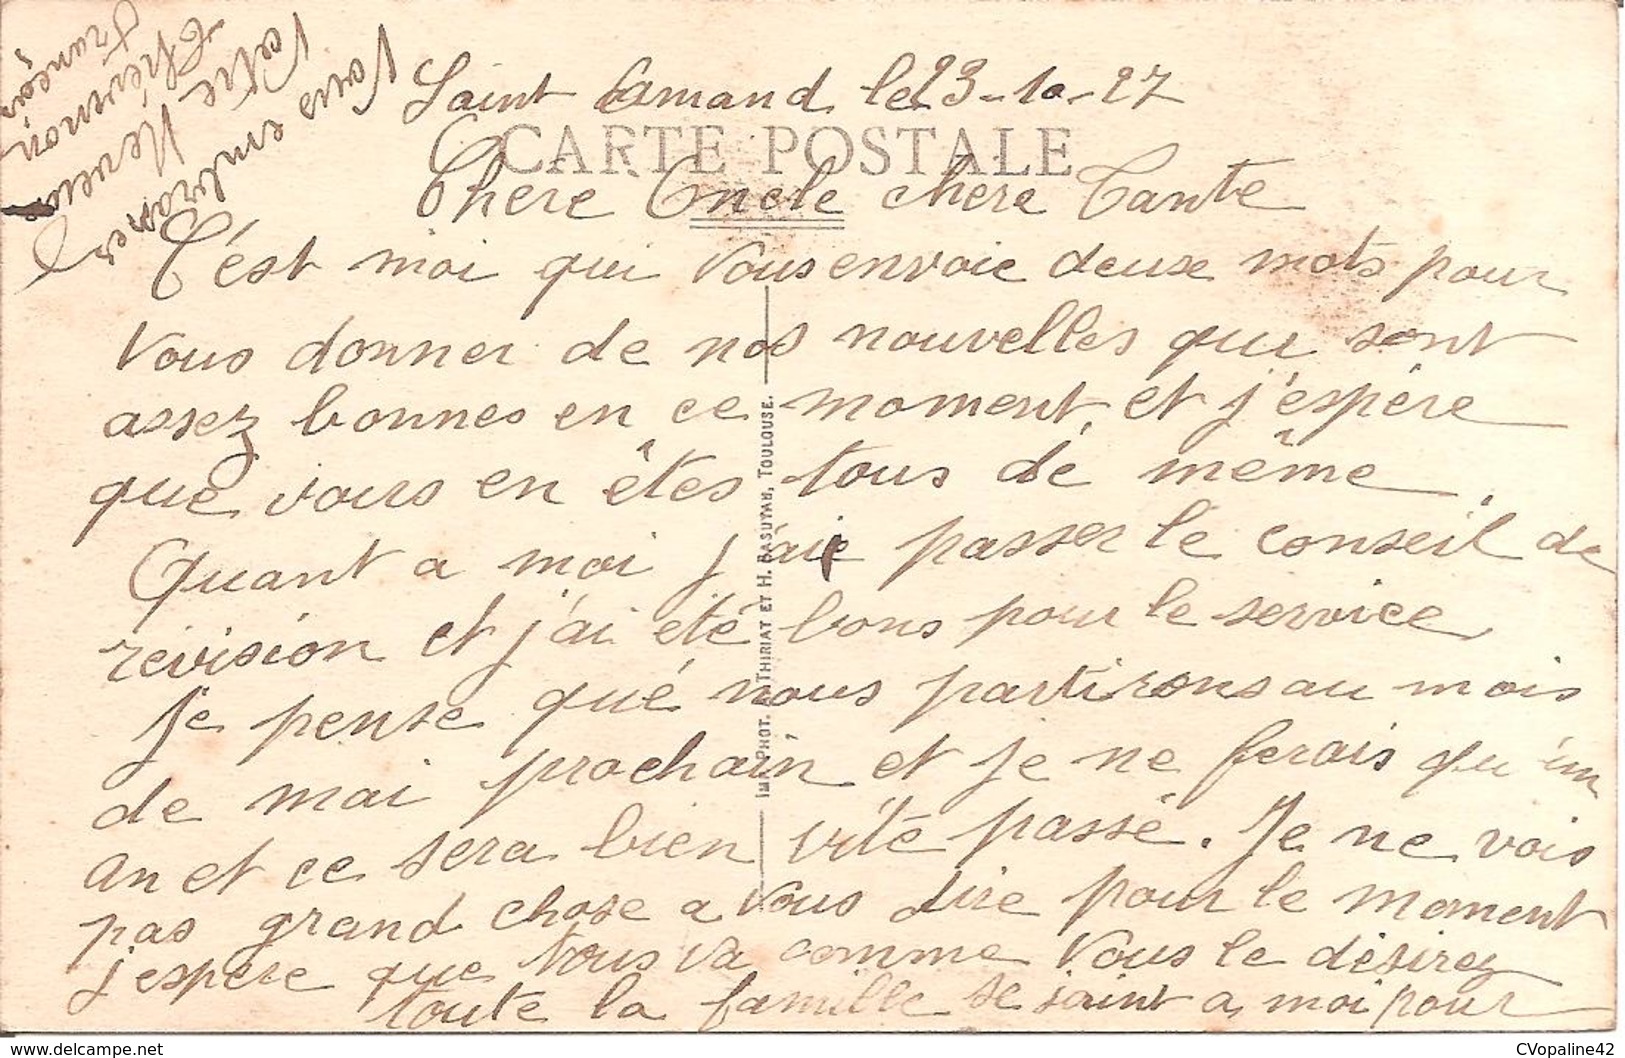 Saint Amand le 23-10-27
CARTE POSTALE
Chère Oncle chère Tante
C'est moi qui vous envoie deux mots pour
vous donner de nos nouvelles qui sont
assez bonnes en ce moment et j'espère
que vous en êtes tous de même.
Quant a moi j'ai passer le conseil de
révision et j'ai été bons pour le service
Je pense que nous partirons au mois
de mai prochain et je ne ferais qu'un
an et ce sera bien vite passé. Je ne vois
pas grand chose a vous dire pour le moment
j'espère que tous va comme vous le désirez
toute la famille se joint a moi pour
Vous embrasser
Votre Neveu
Thévenoin
François
IMP. PHOT. THIRIAT ET H. BASUYAU, TOULOUSE.
CVopaline42